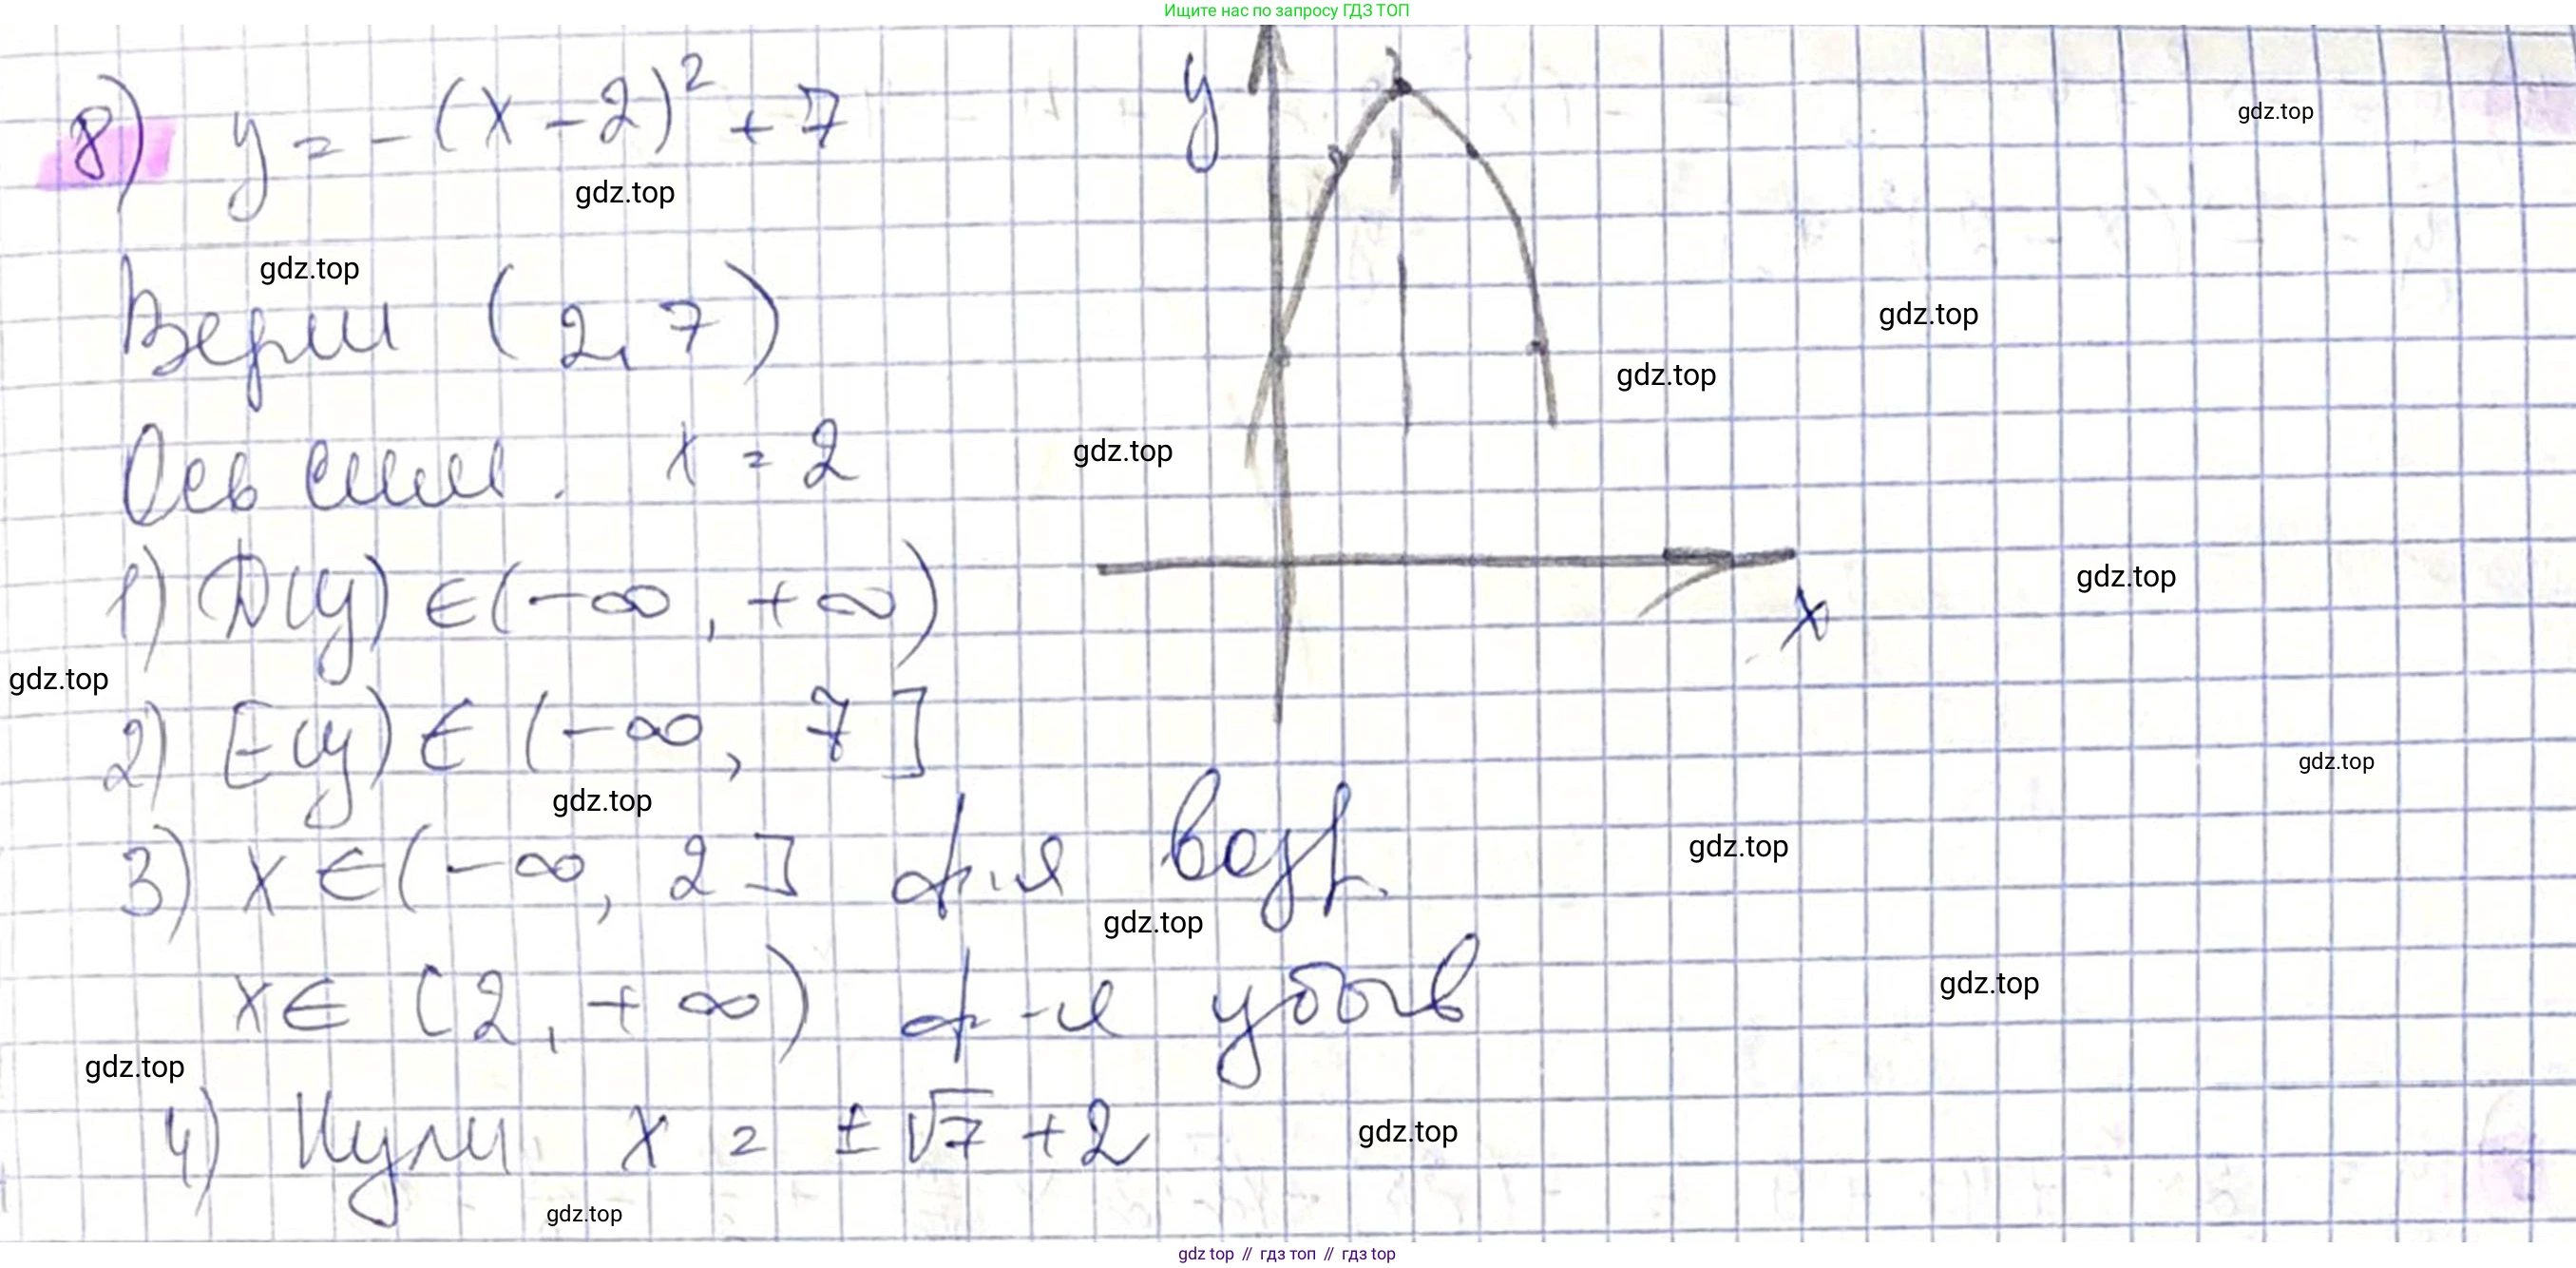 Ищите нас по запросу ГДЗ ТОП
8) y = -(x-2)² + 7
y
gdz.top
gdz.top
gdz.top
Верш (2, 7)
gdz.top
gdz.top
Ось сим. x = 2
gdz.top
1) D(y) ∈ (-∞, +∞)
gdz.top
x
gdz.top
2) E(y) ∈ (-∞, 7]
gdz.top
gdz.top
3) x ∈ (-∞, 2] ф-я возр.
gdz.top
gdz.top
x ∈ [2, +∞) ф-я убыв
gdz.top
gdz.top
4) Нули x = ±√7 + 2
gdz.top
gdz.top
gdz top // гдз топ // гдз top